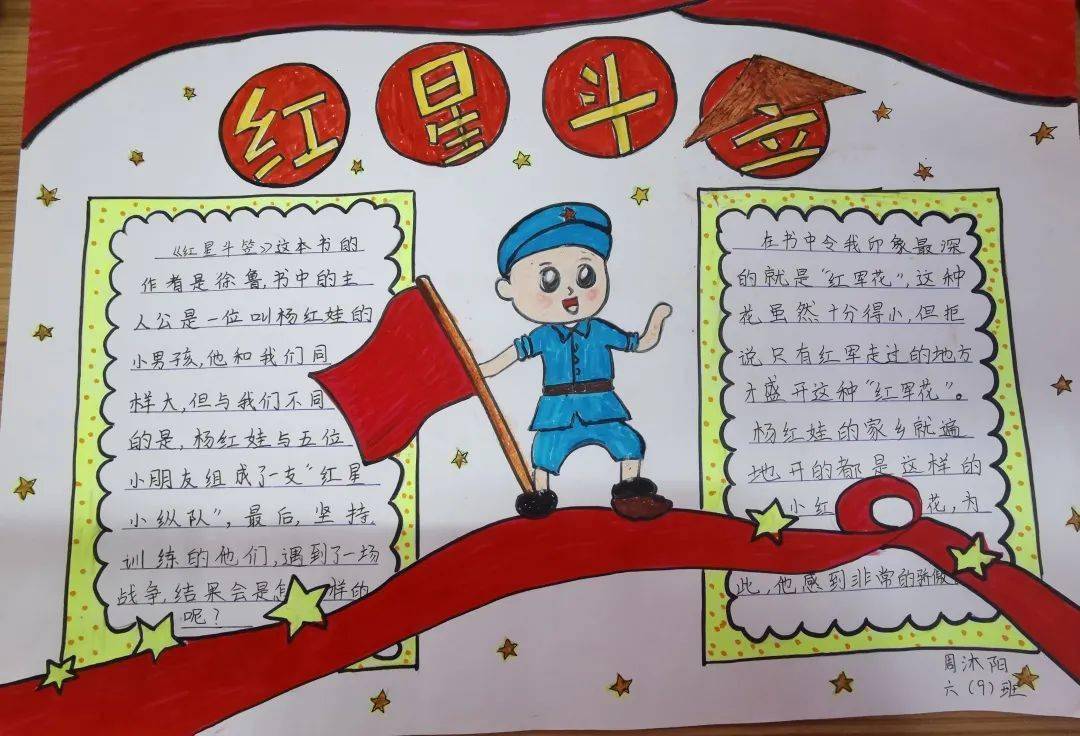 红星斗笠
《红星斗笠》这本书的
作者是徐鲁,书中的主
人公是一位叫杨红娃的
小男孩,他和我们同
样大,但与我们不同
的是,杨红娃与五位
小朋友组成了一支"红星
小纵队",最后,坚持
训练的他们,遇到了一场
战争,结果会是怎样的
呢?
在书中令我印象最深
的就是"红军花",这种
花虽然十分得小,但拒
说只有红军走过的地方
才盛开这种"红军花"。
杨红娃的家乡就遍
地开的都是这样的
小红 花,为
此,他感到非常的骄傲
周沐阳
六(9)班